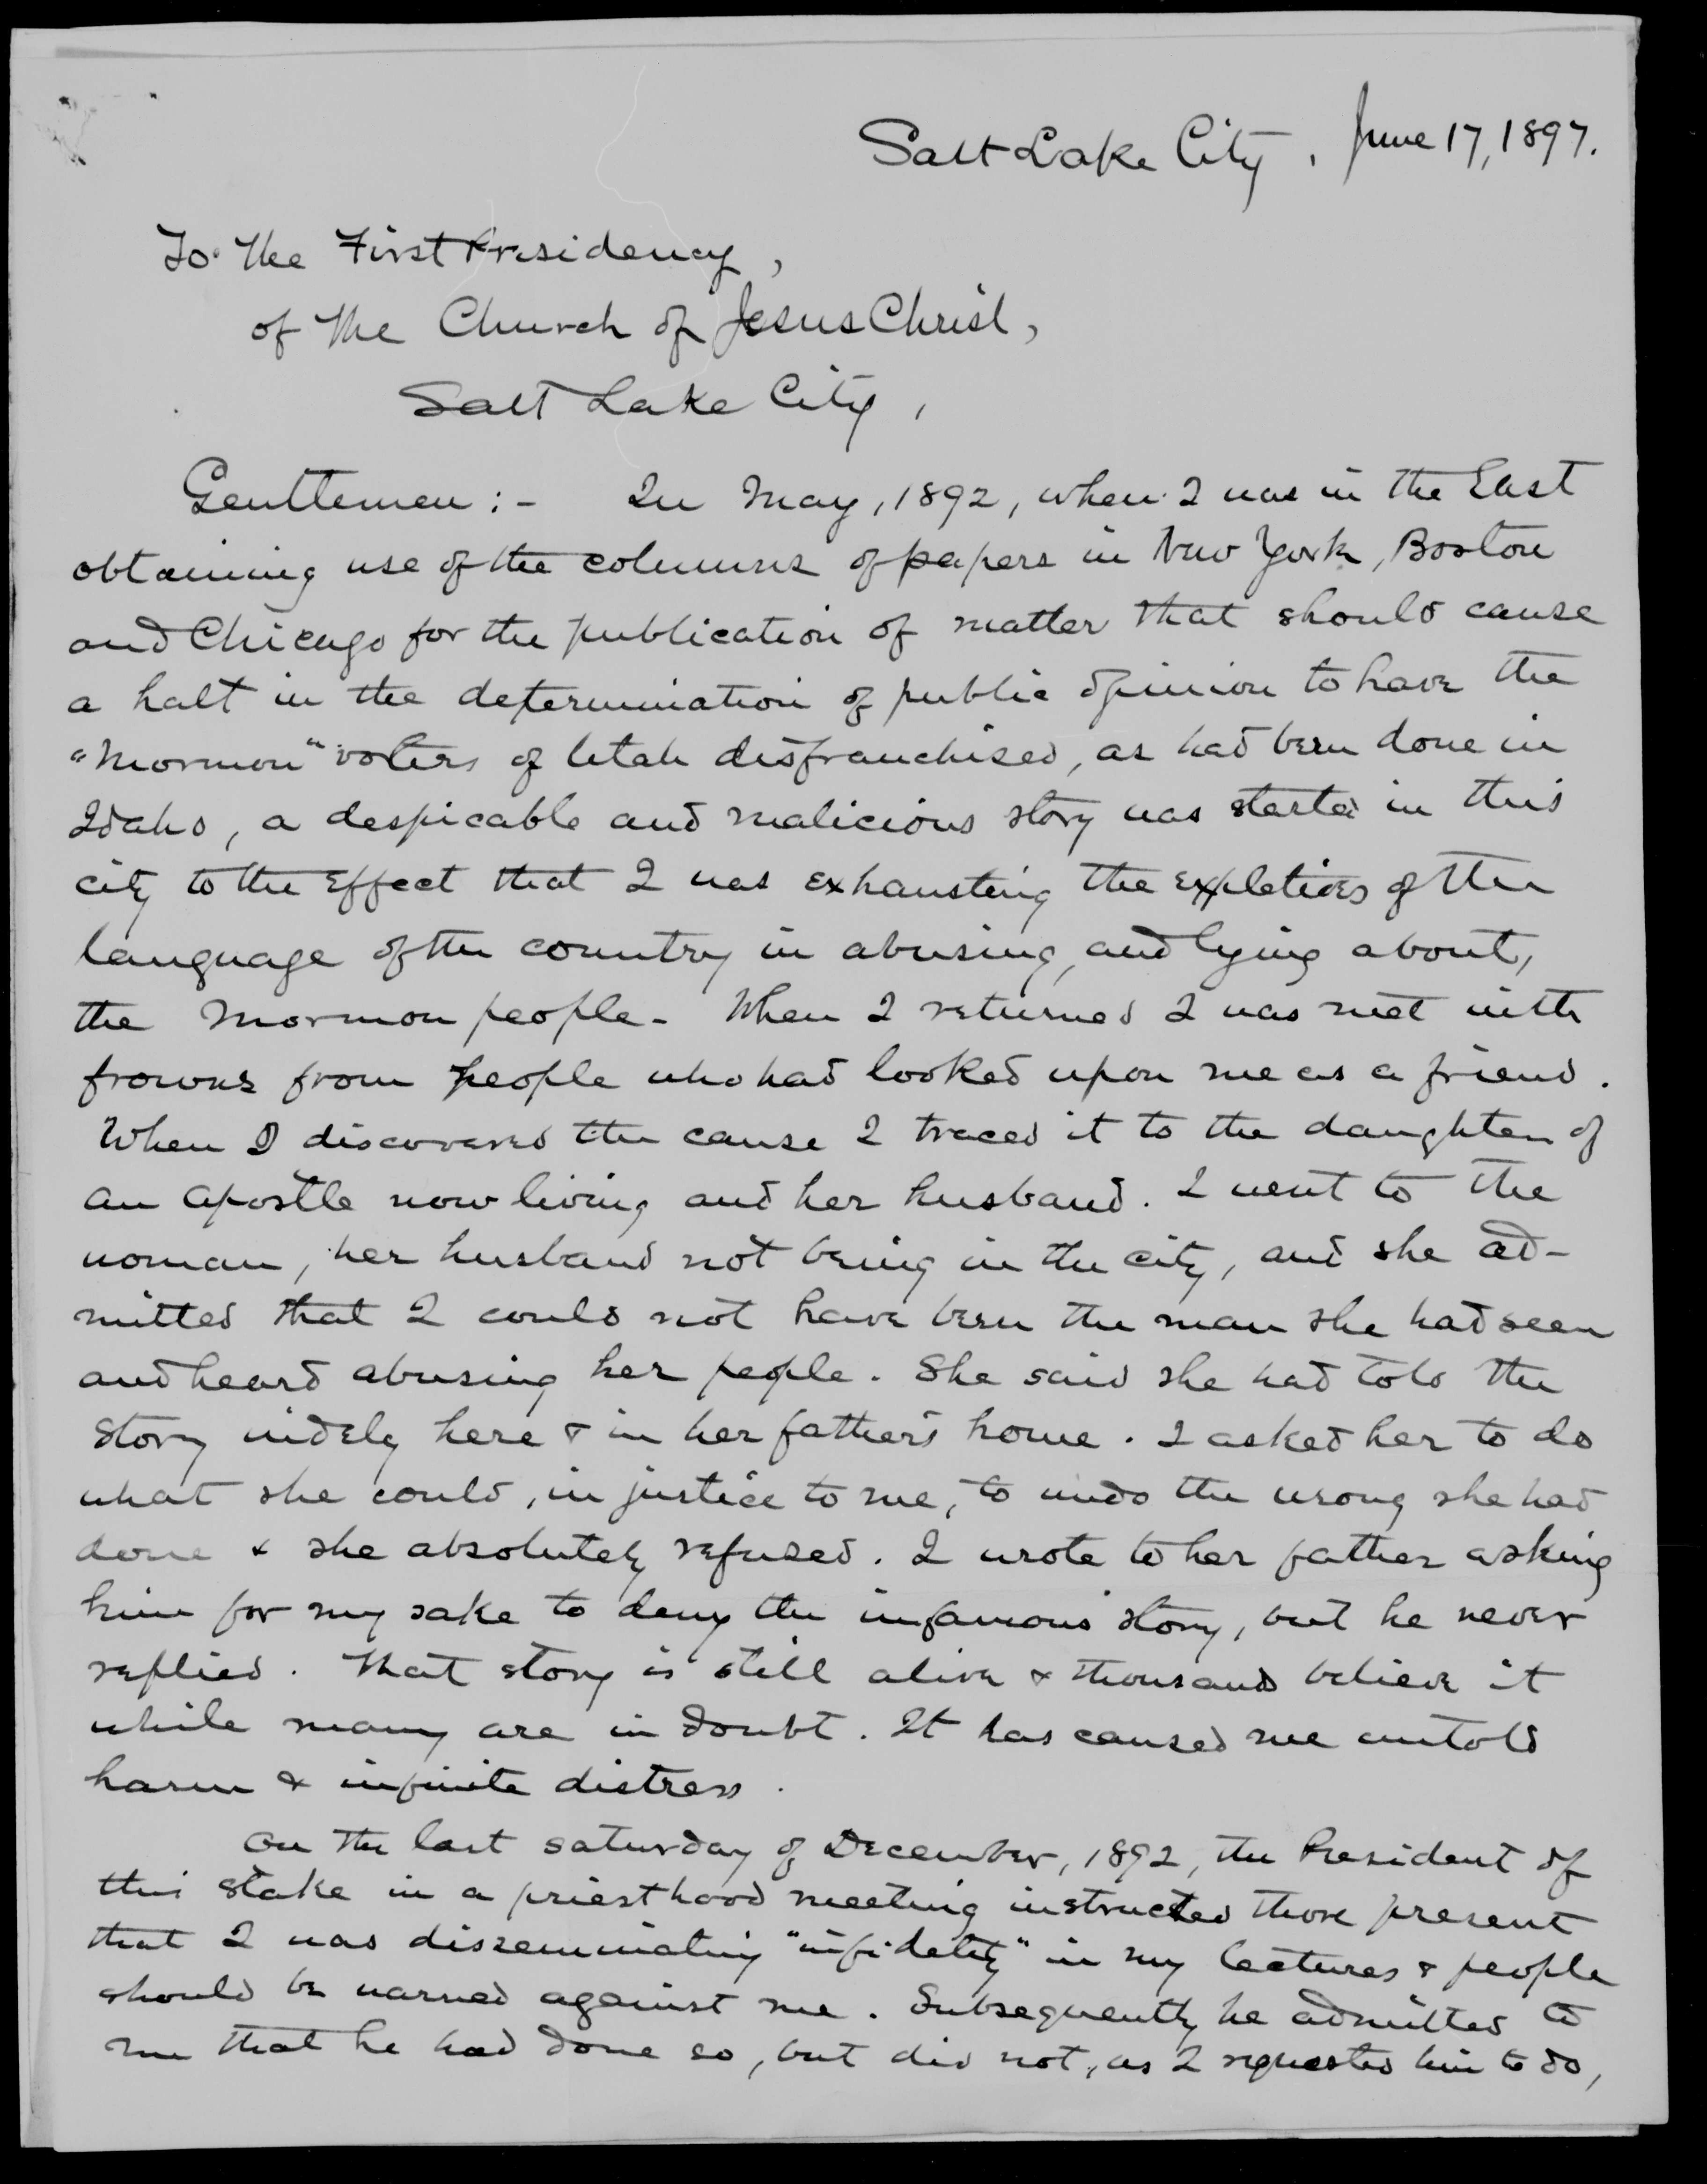 Salt Lake City, June 17, 1897.
To the First Presidency,
of the Church of Jesus Christ,
Salt Lake City,
Gentlemen:- In May, 1892, when I was in the East
obtaining use of the columns of papers in New York, Boston
and Chicago for the publication of matter that should cause
a halt in the determination of public opinion to have the
"Mormon" voters of Utah disfranchised, as had been done in
Idaho, a despicable and malicious story was started in this
city to the effect that I was exhausting the expletives of the
language of the country in abusing, and lying about,
the Mormon people. When I returned I was met with
frowns from people who had looked upon me as a friend.
When I discovered the cause I traced it to the daughter of
an apostle now living and her husband. I went to the
woman, her husband not being in the city, and she ad-
mitted that I could not have been the man she had seen
and heard abusing her people. She said she had told the
story widely here & in her father's home. I asked her to do
what she could, in justice to me, to undo the wrong she had
done & she absolutely refused. I wrote to her father asking
him for my sake to deny the infamous story, but he never
replied. That story is still alive & thousands believe it
while many are in doubt. It has caused me untold
harm & infinite distress.
On the last Saturday of December, 1892, the President of
this stake in a priesthood meeting instructed those present
that I was disseminating "infidelity" in my lectures & people
should be warned against me. Subsequently he admitted to
me that he had done so, but did not, as I requested him to do,